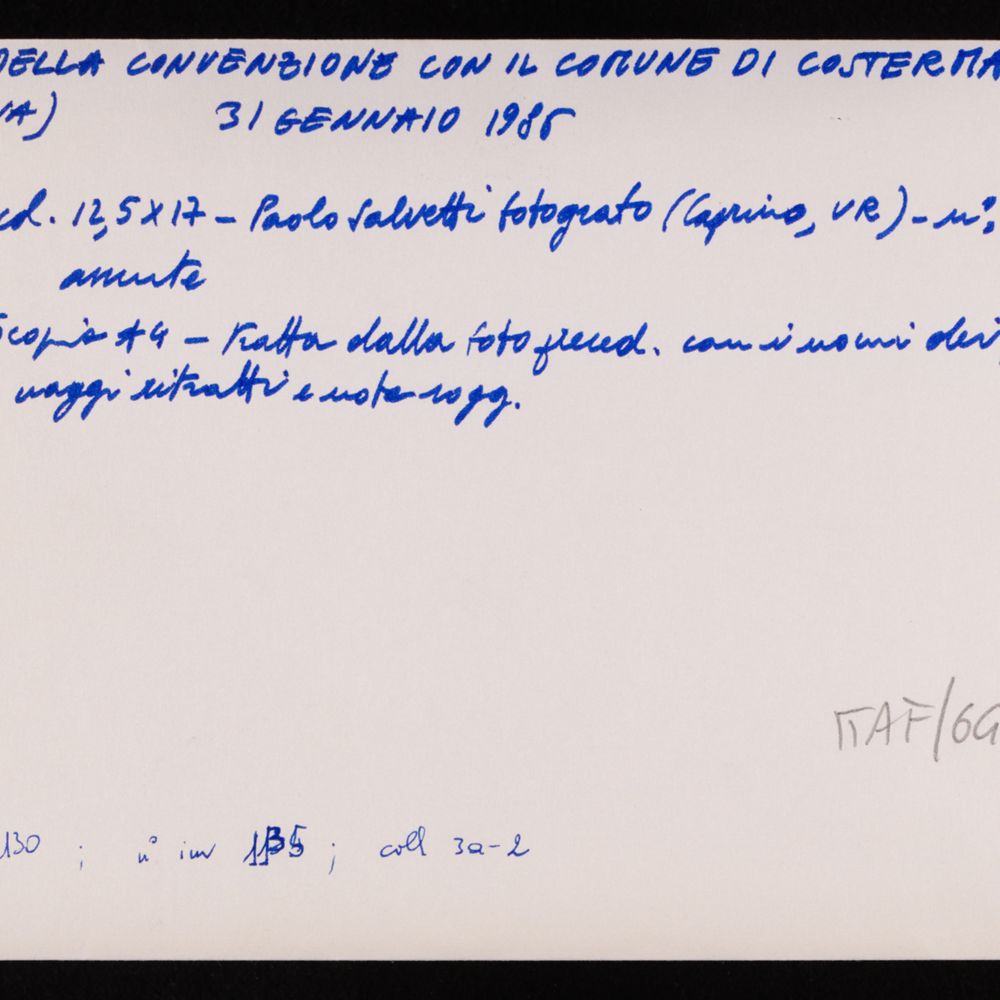 DELLA CONVENZIONE CON IL COMUNE DI COSTERMA
VA) 31 GENNAIO 1986
cd. 12,5x17 - Paolo Salvetti fotografo (Caprino, VR) - n°
assente
scopia A4 - Tratta dalla foto preced. con i nomi dei
naggi ritratti e note sogg.
TAF/6G
130 ; n° inv ; coll 3a-2